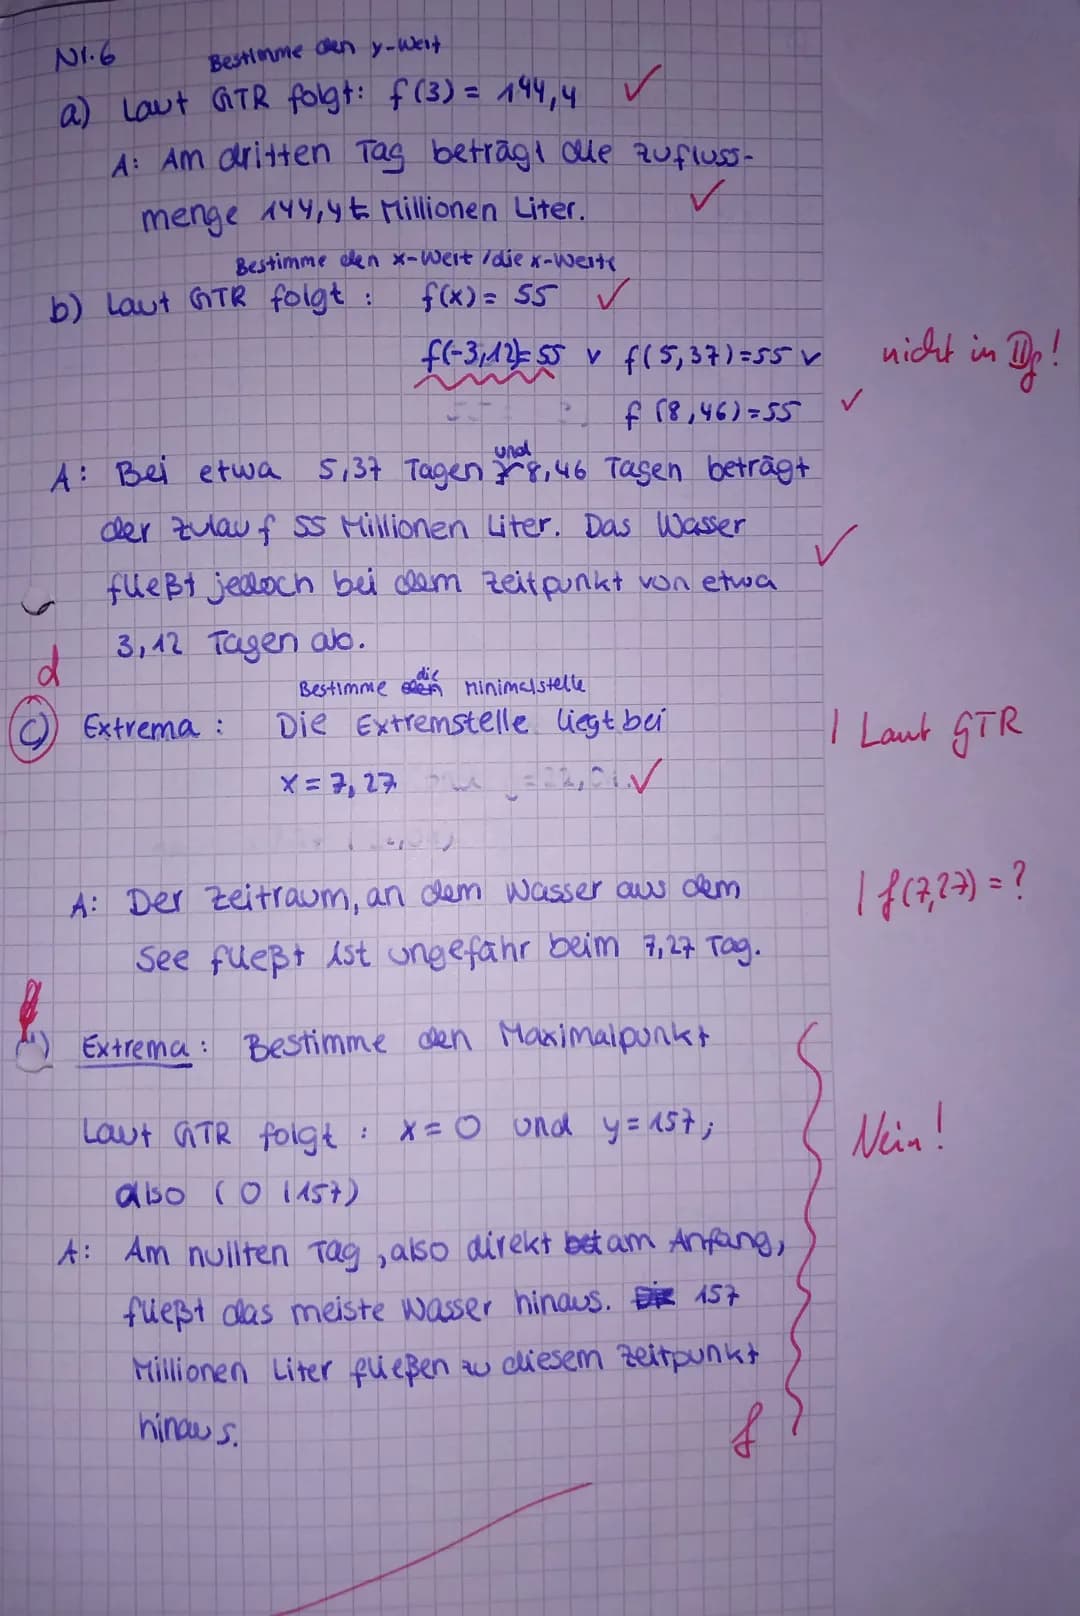 Nr. 6 Bestimme den y-Wert
a) Laut GTR folgt: f(3) = 144,4 ✓
A: Am dritten Tag beträgt die Zufluss-
menge 144,4 Millionen Liter. ✓
Bestimme den x-Wert / die x-Werte
b) Laut GTR folgt : f(x) = 55 ✓
f(-3,12)=55 v f(5,37)=55 v nicht in D_f!
f(8,46)=55 ✓
A: Bei etwa 5,37 Tagen und 8,46 Tagen beträgt
der Zulauf 55 Millionen Liter. Das Wasser
fließt jedoch bei dem Zeitpunkt von etwa ✓
3,12 Tagen ab.
d
Bestimme die Minimalstelle
c) Extrema : Die Extremstelle liegt bei | Laut GTR
x = 7,27 ✓
A: Der Zeitraum, an dem Wasser aus dem | f(7,27) = ?
See fließt ist ungefähr beim 7,27 Tag.
Extrema : Bestimme den Maximalpunkt
Laut GTR folgt : x = 0 und y = 157; Nein!
also (0|157)
A: Am nullten Tag, also direkt am Anfang,
fließt das meiste Wasser hinaus. 157
Millionen Liter fließen zu diesem Zeitpunkt
hinaus. f